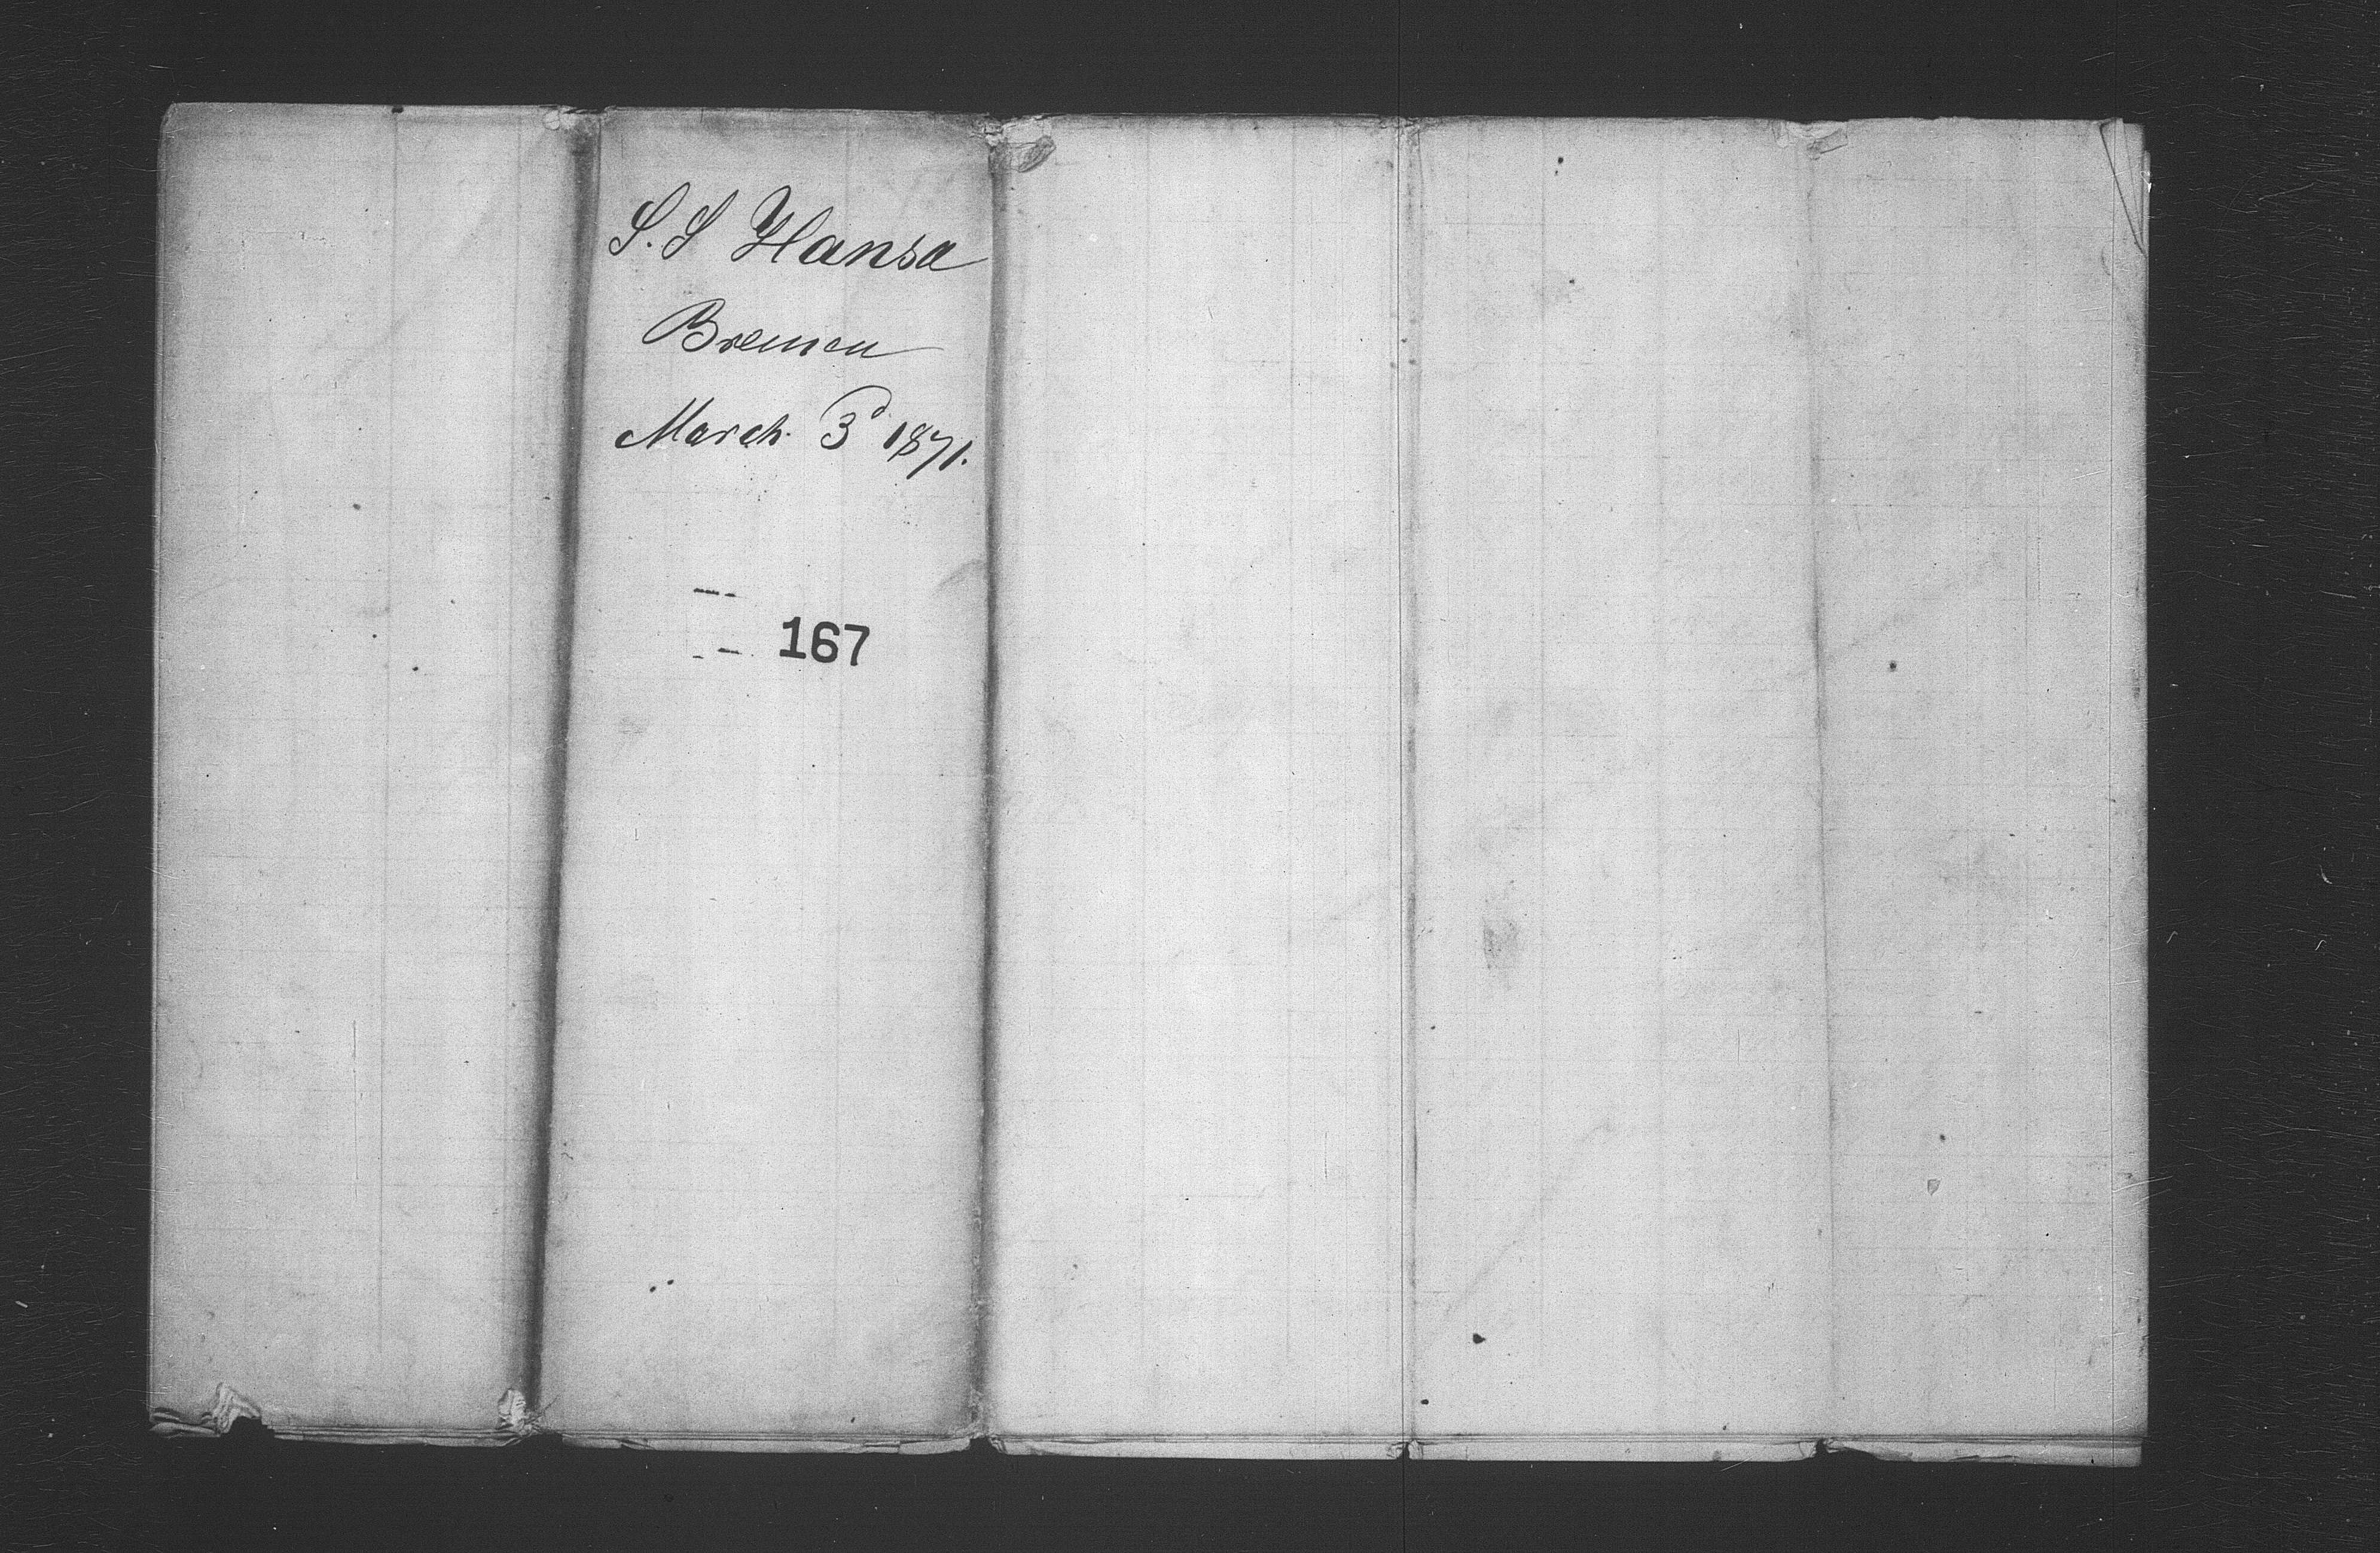 S.S Hansa
Bremen
March. 3d 1871.
167